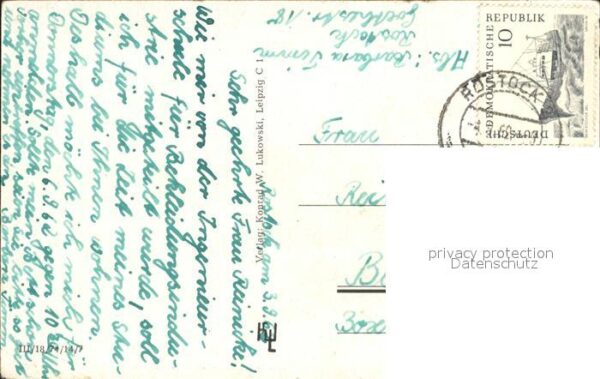 Abs.: Barbara Timm
Rostock
Goethestr. 18
Rostock, am 3.8.62
Sehr geehrte Frau Reimski!
Wie mir von der Ingenieur-
schule für Bekleidungsindu-
strie mitgeteilt wurde, soll
ich für die Zeit meines Stu-
diums bei Ihnen wohnen.
Deshalb möchte ich mich für
Donnerstag, den 6.8.62 gegen 10 Uhr
anmelden. Sollte mein
Verlag: Konrad W. Lukowski, Leipzig C 1
III/18/74/14/7
Frau
Rei
B
DEUTSCHE DEMOKRATISCHE REPUBLIK
10
ROSTOCK
privacy protection
Datenschutz